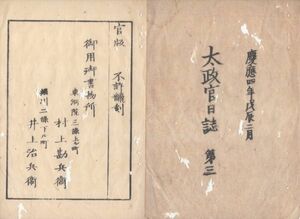 慶應四年戊辰二月
太政官日誌 第三
官版 不許飜刻
御用御書物所
東洞院三條上ル町
村上勘兵衞
堀川二條下ル町
井上治兵衞